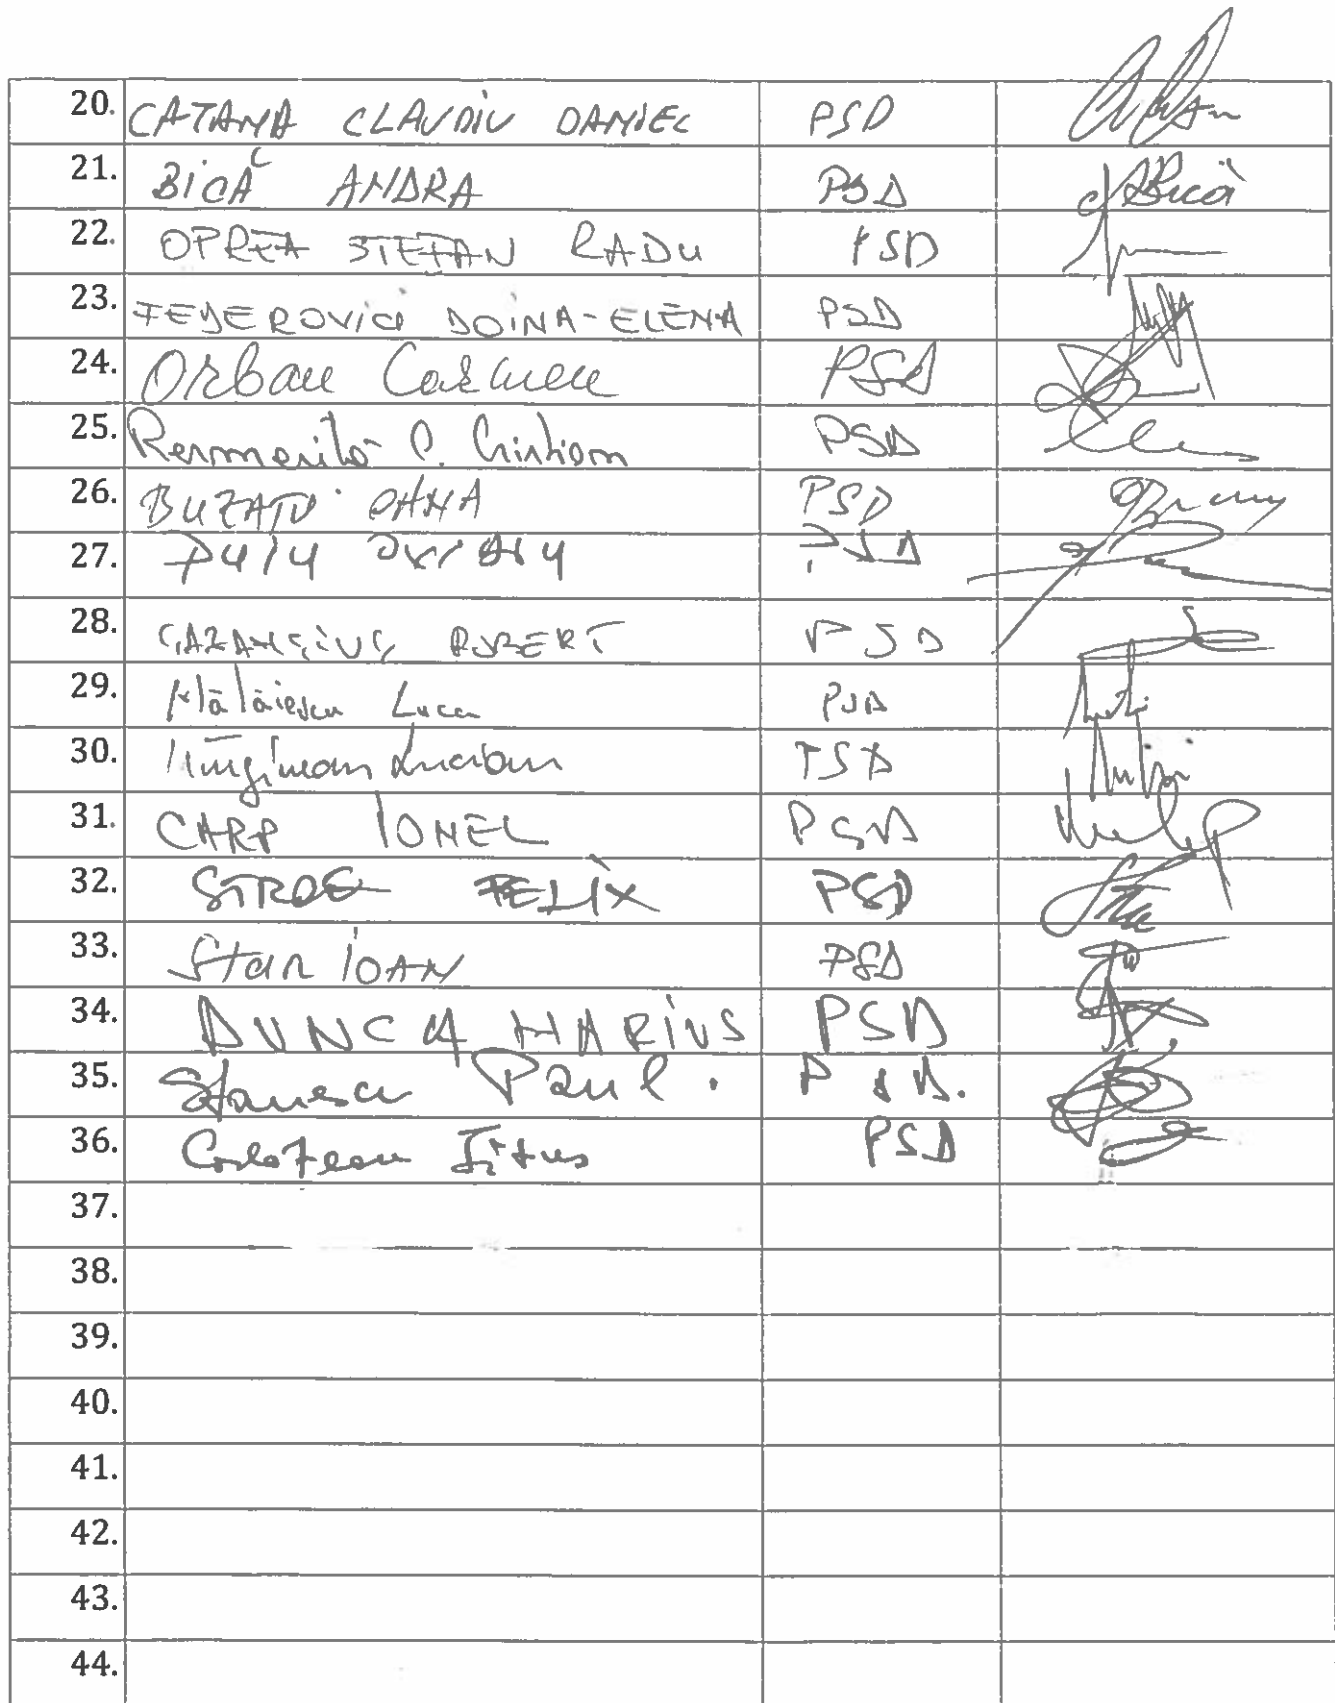 20. CATANA CLAUDIU DANIEL PSD
21. BICĂ ANDRA PSD ABică
22. OPREA STEFAN RADU PSD
23. FEDEROVICI DOINA-ELENA PSD
24. Orban Carmen PSD
25. Resmeriță C. Cristian PSD
26. BUZATU OANA PSD
27. PUIU OVIDIU PSD
28. CAZANCIUC ROBERT PSD
29. Mălăiescu Luca PSD
30. Lucian PSD
31. CARP IONEL PSD
32. STROE FELIX PSD
33. Stan IOAN PSD
34. DUNCA MARIUS PSD
35. Stanescu Paul. PSD.
36. Corlatean Titus PSD
37.
38.
39.
40.
41.
42.
43.
44.